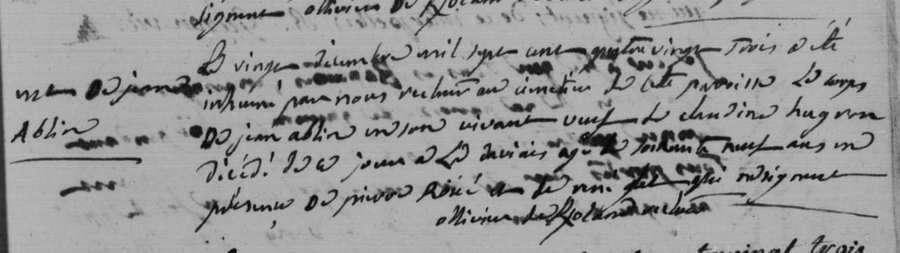 signent ollivier De Rolland
Le vingt decembre mil sept cent quatre vingt trois a été
inhumé par nous recteur au cimetiere de cette paroisse Le corps
De jean ablin en son vivant veuf de claudine hugron
Décédé De ce jour a La age de soixante neuf ans en
présence De pierre et de rené qui ne signent
ollivier de Rolland recteur
De jean
Ablin
trois